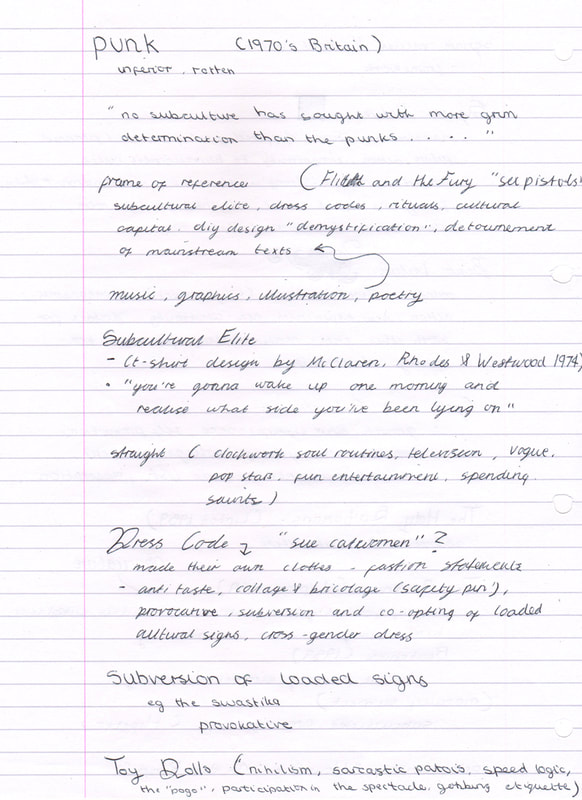 punk (1970's Britain)
inferior, rotten
"no subculture has sought with more grim
determination than the punks . . . . "
frame of reference (Filth and the Fury "sex pistols"
subcultural elite, dress codes, rituals, cultural
capital. diy design "demystification", detournement
of mainstream texts
music, graphics, illustration, poetry
Subcultural Elite
- (t-shirt design by McClaren, Rhodes & Westwood 1974)
• "you're gonna wake up one morning and
realise what side you've been lying on"
straight ( clockwork soul routines, television, Vogue,
pop stars, fun entertainment, spending
saints)
Dress Code "sue catwomen"?
made their own clothes - fashion statements
- anti taste, collage & bricolage (safety pin'),
provocative, subversion and co-opting of loaded
cultural signs, cross-gender dress
Subversion of loaded signs
eg the swastika
provokative
Toy Dolls (nihilism, sarcastic patois, speed logic,
the "pogo", participation in the spectacle, gobbing etiquette)